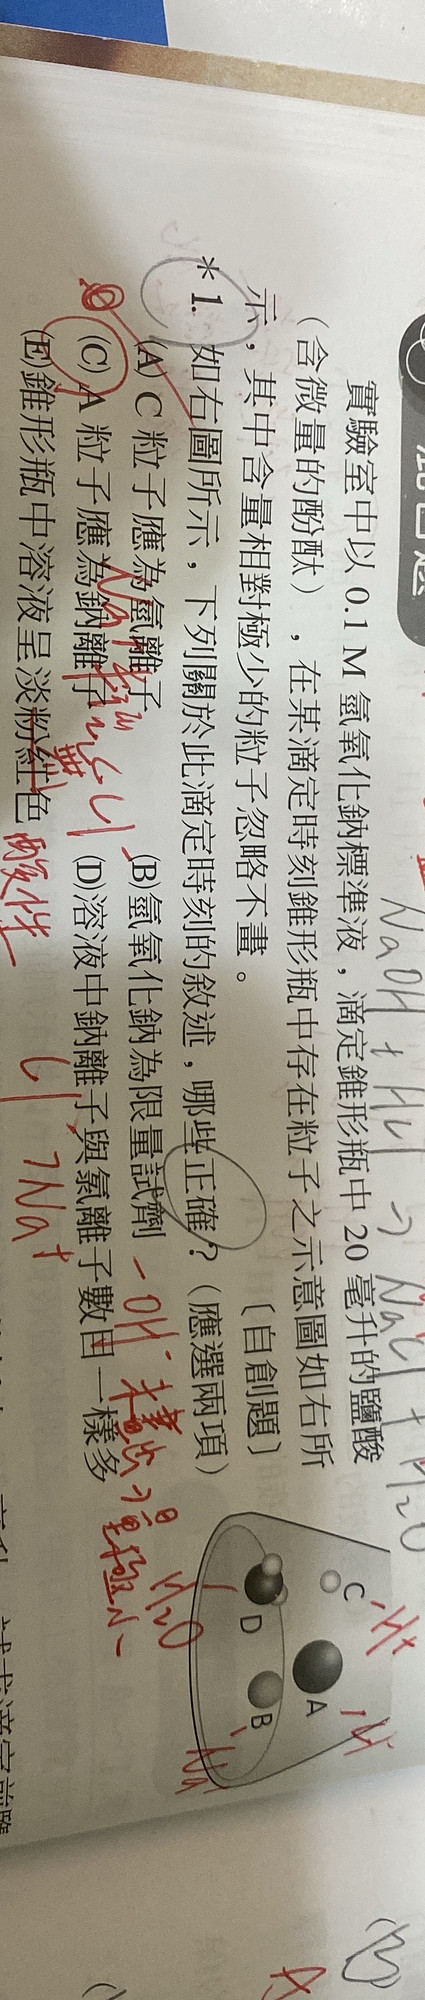 混合題
實驗室中以 0.1 M 氫氧化鈉標準液，滴定錐形瓶中 20 毫升的鹽酸
（含微量的酚酞），在某滴定時刻錐形瓶中存在粒子之示意圖如右所
示，其中含量相對極少的粒子忽略不畫。〔自創題〕
＊1. 如右圖所示，下列關於此滴定時刻的敘述，哪些正確？（應選兩項）
(A) C 粒子應為氫離子 (B)氫氧化鈉為限量試劑
(C) A 粒子應為鈉離子 (D)溶液中鈉離子與氯離子數目一樣多
(E)錐形瓶中溶液呈淡粉紅色
NaOH + HCl → NaCl + H2O
C
H+
A
B
Na+
D
H2O
酸性
Cl- > Na+
OH-
(B)
A